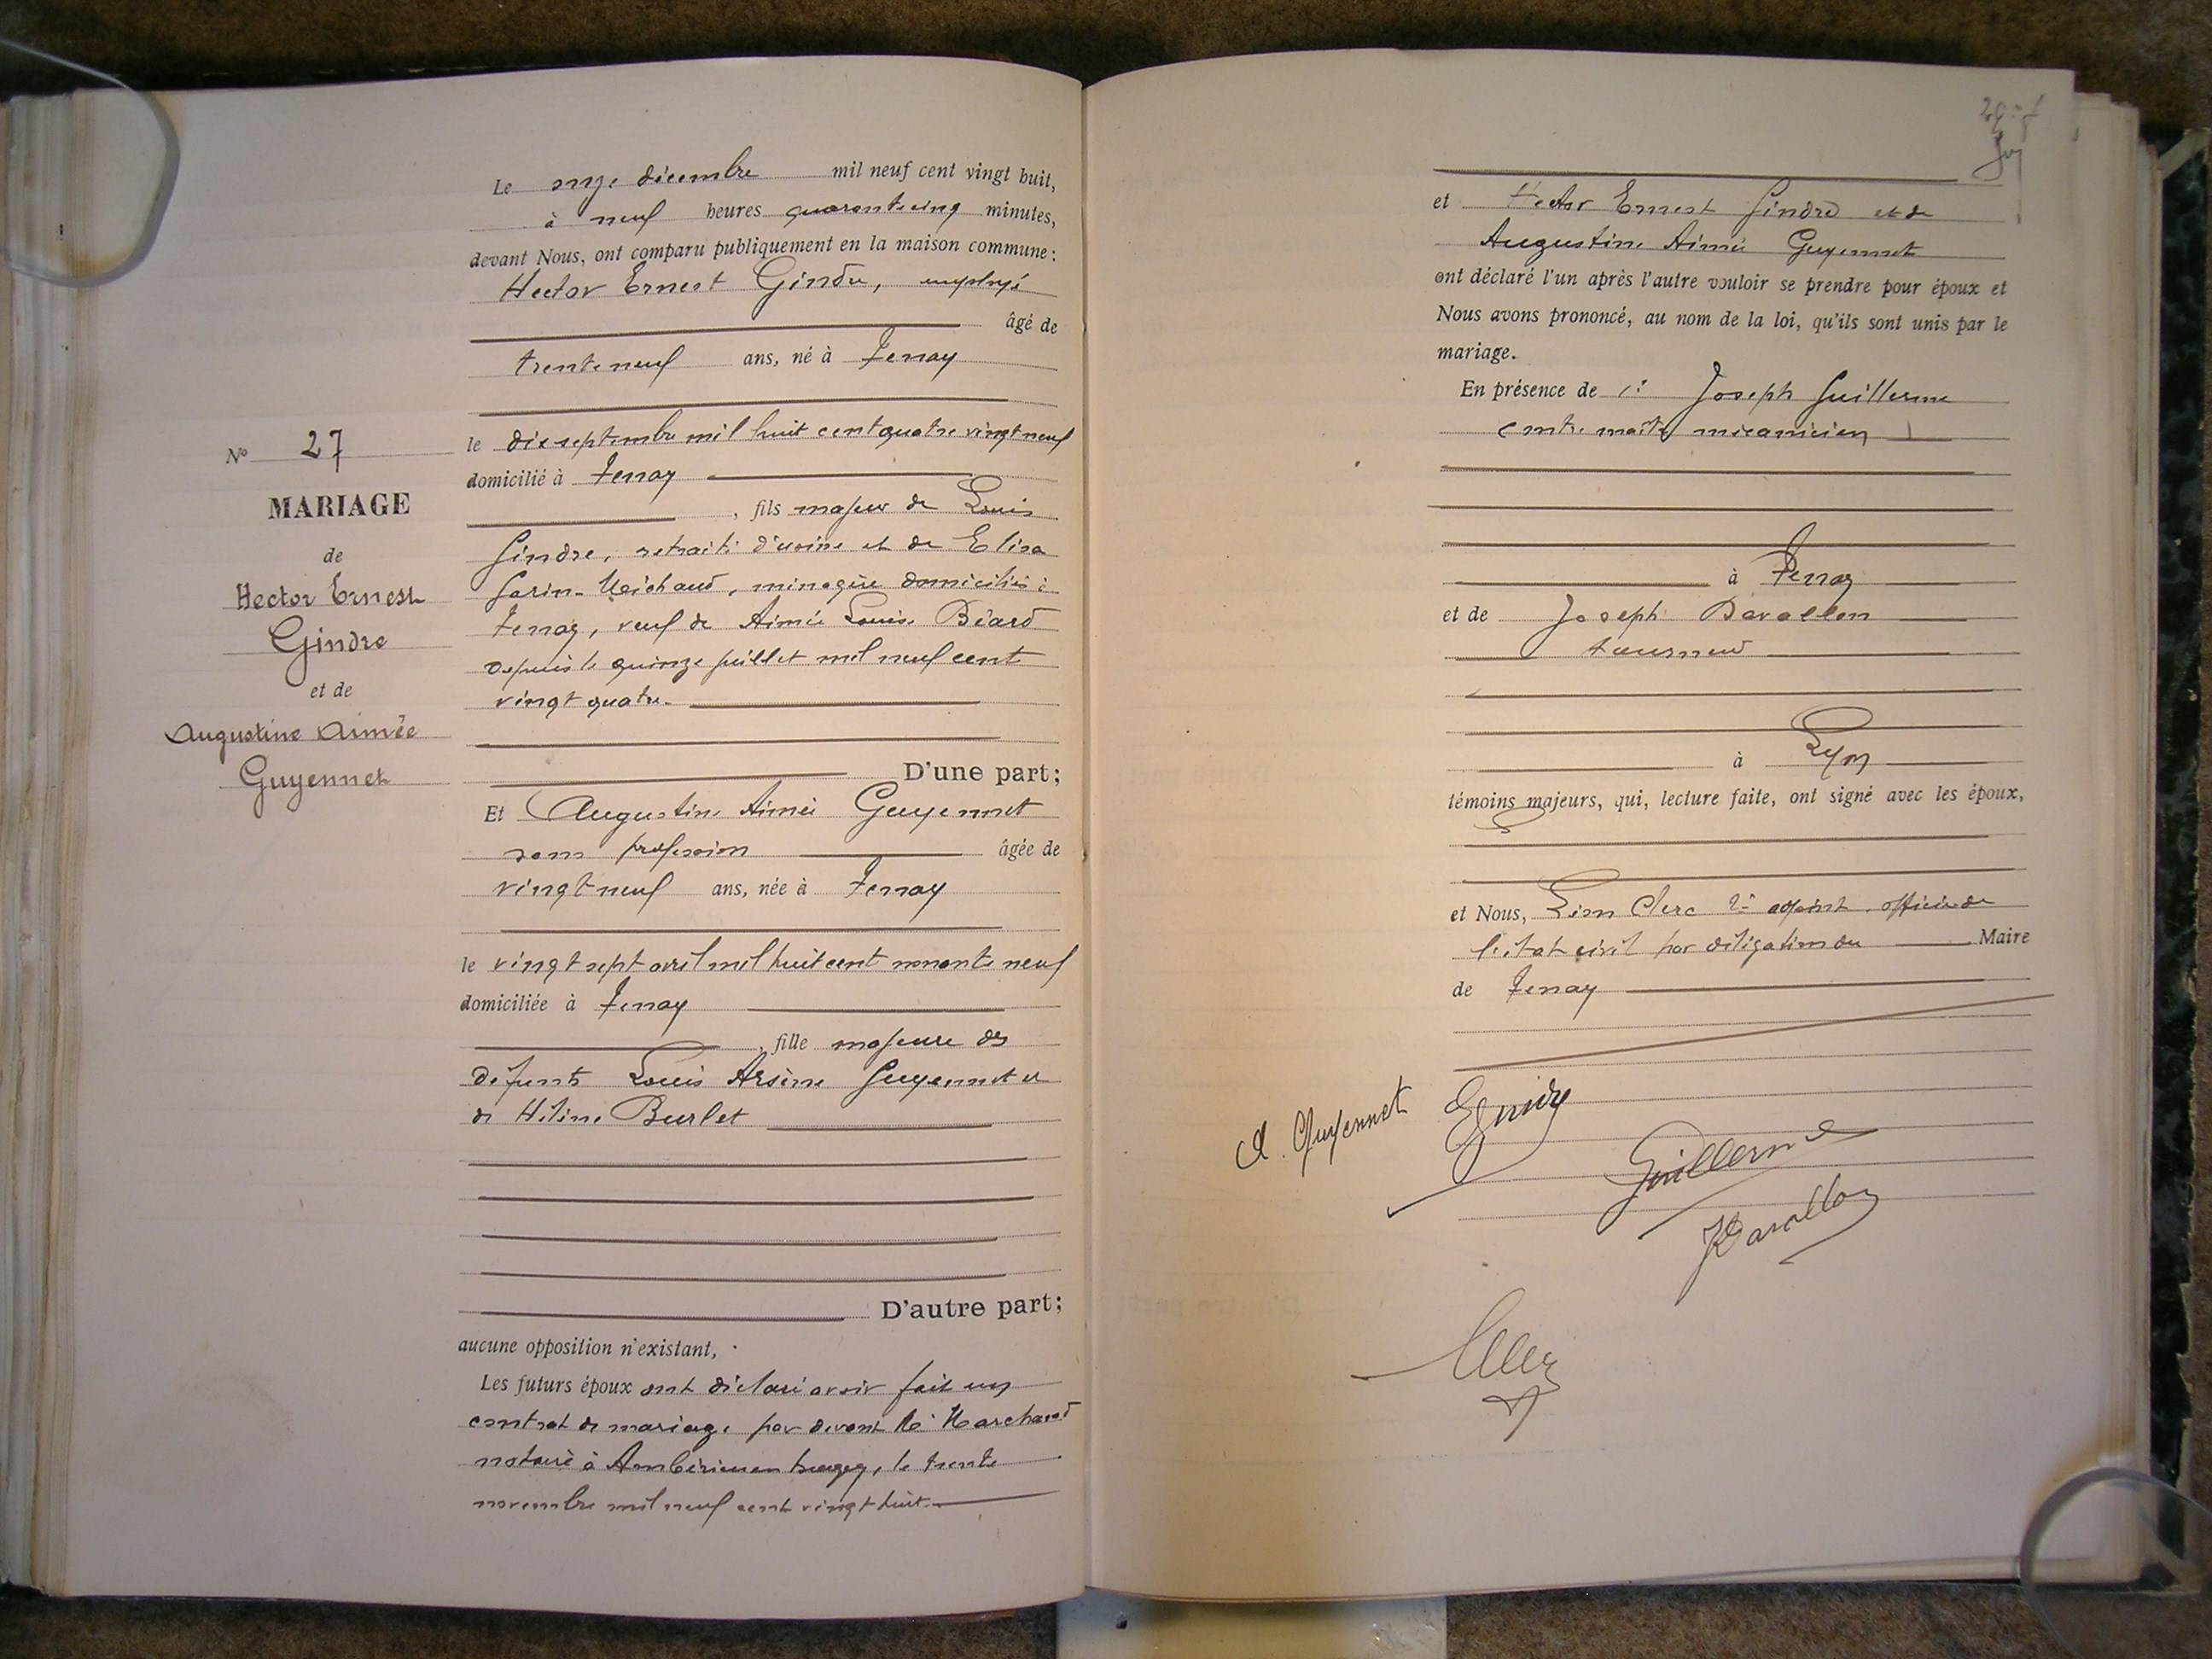 Le onze décembre mil neuf cent vingt huit,
à neuf heures quarante cinq minutes,
devant Nous, ont comparu publiquement en la maison commune :
Hector Ernest Gindre, employé
âgé de
trente neuf ans, né à Tenay
le dix septembre mil huit cent quatre vingt neuf
domicilié à Tenay
, fils majeur de Louis
Gindre, retraité d'usine et de Elisa
Garin-Michaud, ménagère domiciliés à
Tenay, veuf de Aimée Louise Béard
depuis le quinze juillet mil neuf cent
vingt quatre.
D'une part ;
Et Augustine Aimée Guyennet
sans profession âgée de
vingt neuf ans, née à Tenay
le vingt sept avril mil huit cent nonante neuf
domiciliée à Tenay
, fille majeure des
défunts Louis Arsène Guyennet et
de Hélène Burlet
D'autre part ;
aucune opposition n'existant,
Les futurs époux ont déclaré avoir fait un
contrat de mariage par devant Me Marchand
notaire à Ambérieu en bugey, le trente
novembre mil neuf cent vingt huit.
No 27
MARIAGE
de
Hector Ernest
Gindre
et de
Augustine Aimée
Guyennet
et Hector Ernest Gindre et de
Augustine Aimée Guyennet
ont déclaré l'un après l'autre vouloir se prendre pour époux et
Nous avons prononcé, au nom de la loi, qu'ils sont unis par le
mariage.
En présence de 1° Joseph Guillerme
contre maître mécanicien
à Tenay
et de Joseph Davallon
tourneur
à Lyon
témoins majeurs, qui, lecture faite, ont signé avec les époux,
et Nous, Léon Clerc 2e adjoint officier de
l'état civil par délégation du Maire
de Tenay
A. Guyennet
E Gindre
Guillerme
J Davallon